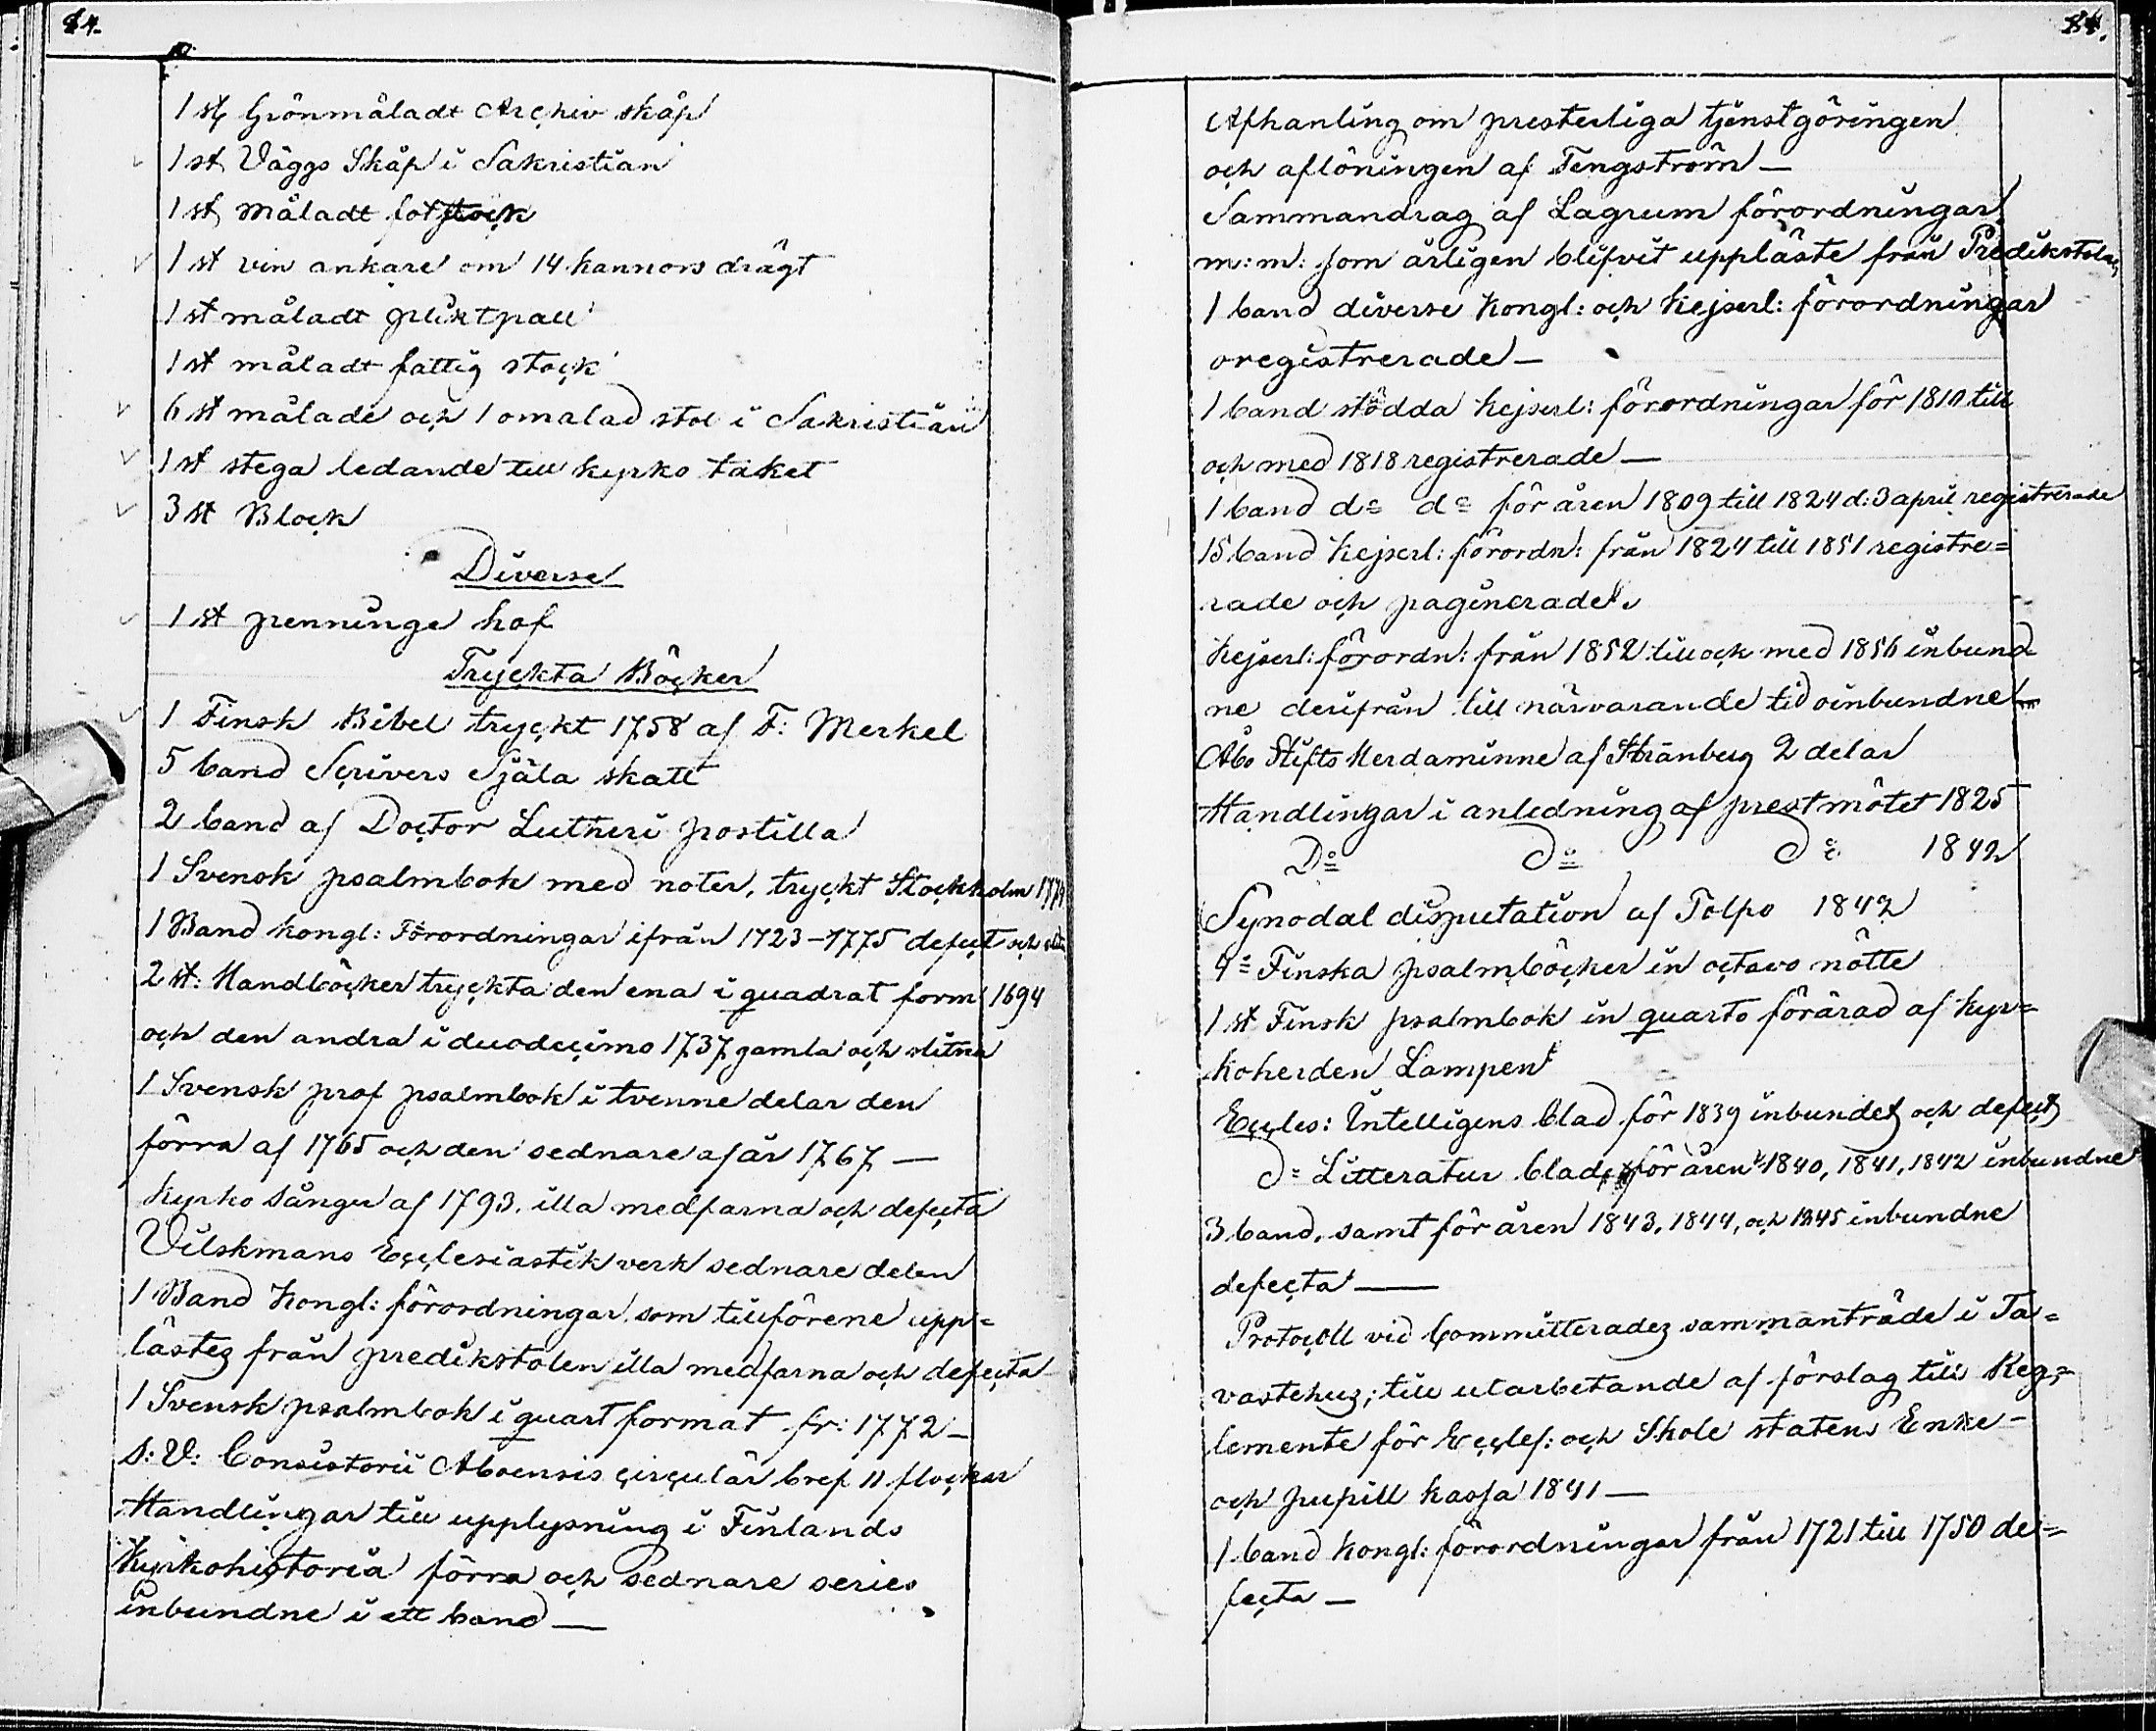 84.
1 st Grönmåladt Archiv skåp
1 st Väggs Skåp i Sakristian
1 st måladt fotstock
1 st vin ankare om 14 kannors drägt
1 st måladt pliktpall
1 st måladt fattig stock
6 st målade och 1 omalad stol i Sakristian
1 st stega ledande till kyrko taket
3 st Block
Diverse
1 st penninge hof
Tryckta Böcker
1 Finsk Bibel tryckt 1758 af F: Merkel
5 band Scrivers Själa skatt
2 band af Doctor Lutheri postilla
1 Svensk psalmbok med noter, tryckt Stockholm
1 Band Kongl: Förordningar ifrån 1723-1775 defect och
2 st: Handböcker tryckta den ena i quadrat form 1694
och den andra i duodecimo 1737 gamla och slitna
1 Svensk prof psalmbok i tvenne delar den
förra af 1765 och den sednare af år 1767 —
Kyrko sånger af 1793. illa medfarna och defecta
Vilskmans Ecclesiastik verk sednare delen
1 Band Kongl: förordningar som tillförene upp=
lästes från predikstolen illa medfarna och defecta
1 Svensk psalmbok i quart format fr: 1772 —
S: V: Consistorii Aboensis circulär bref 11 flockar
Handlingar till upplysning i Finlands
Kyrkohistoria förra och sednare series
inbundne i ett band —
84.
Afhanling om presterliga tjenstgöringen
och aflöningen af Tengström —
Sammandrag af Lagrum förordningar
m: m: som årligen blifvit uppläste från Predikstolen
1 band diverse Kongl: och Kejserl: förordningar
oregistrerade —
1 band stödda Kejserl: förordningar för 1810 till
och med 1818 registrerade —
1 band d:o d:o för åren 1809 till 1824 d: 3 april registrerade
15 band Kejserl: förordn: från 1824 till 1851 registre=
rade och paginerade
Kejserl: förordn: från 1852 till och med 1856 inbund
ne derifrån till närvarande tid oinbundne —
Åbo Stifts Herdaminne af Stranberg 2 delar
Handlingar i anledning af prestmötet 1825
D:o d:o d:o 1842
Synodal disputation af Tolpo 1842
4 Finska psalmböcker in octavo nötte
1 st Finsk psalmbok in quarto förärad af Kyr=
koherden Lampen
Eccles: Intelligens blad för 1839 inbundet och defect
d:o Litteratur blad för åren 1840, 1841, 1842 inbundne
3 band, samt för åren 1843, 1844, och 1845 inbundne
defecta —
Protocoll vid Committerades sammanträde i Ta=
vastehus; till utarbetande af förslag till Reg=
lemente för Eccles: och Skole statens Enke-
och pupill kassa 1841 —
1 band Kongl: förordningar från 1721 till 1750 de=
fecta —